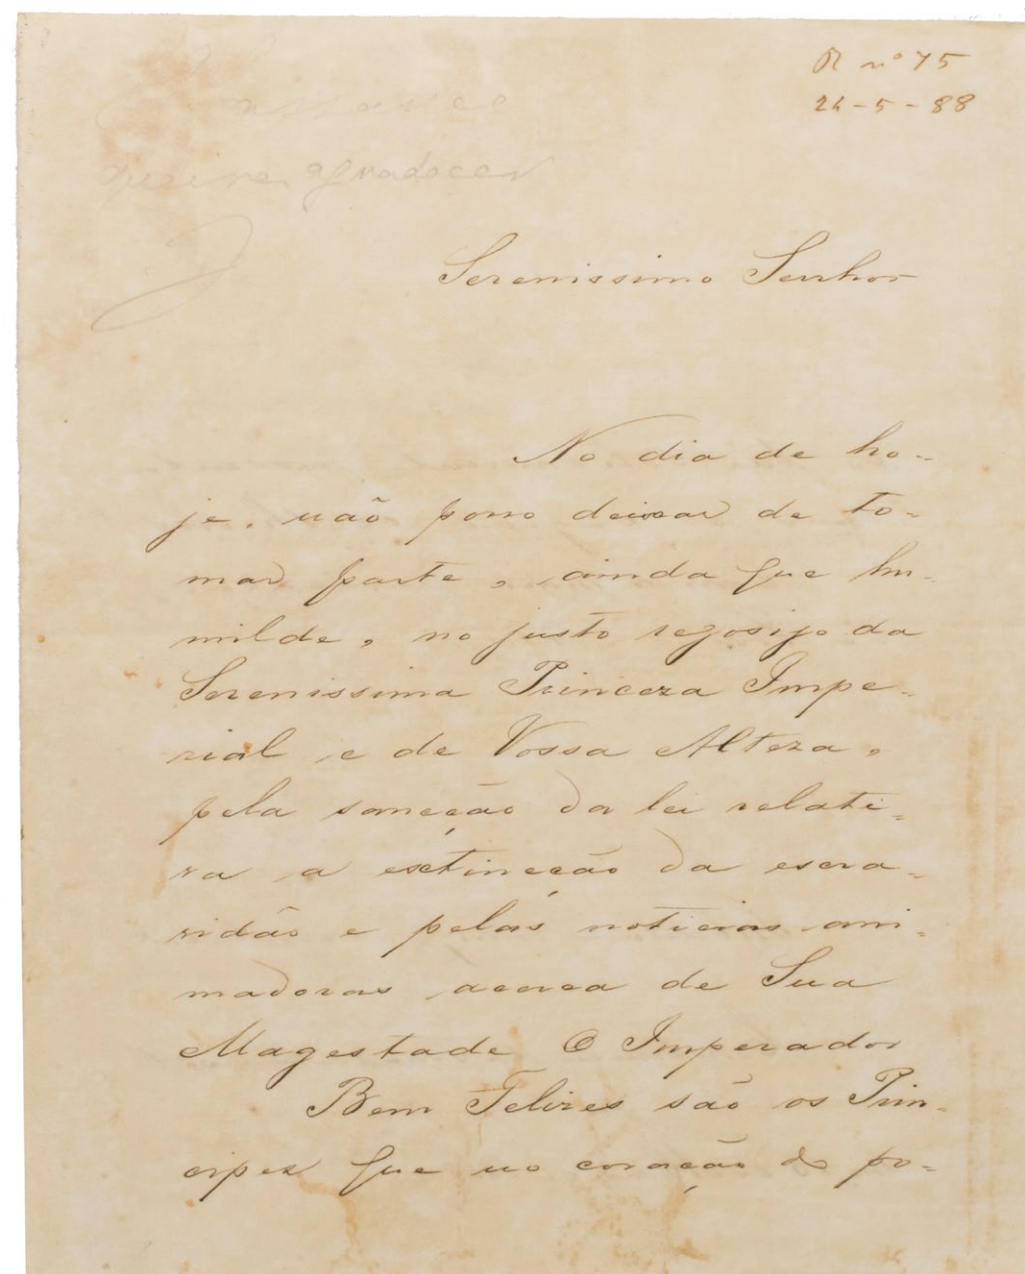 R nº 75
24-5-88
queira agradecer
Serenissimo Senhor
No dia de ho-
je, não posso deixar de to-
mar parte, ainda que hu-
milde, no justo regosijo da
Serenissima Princeza Impe-
rial e de Vossa Alteza,
pela sancção da lei relati-
va a extincção da escra-
vidão e pelas noticias ani-
madoras acerca de Sua
Magestade O Imperador
Bem Felizes são os Prin-
cipes que no coração do po-